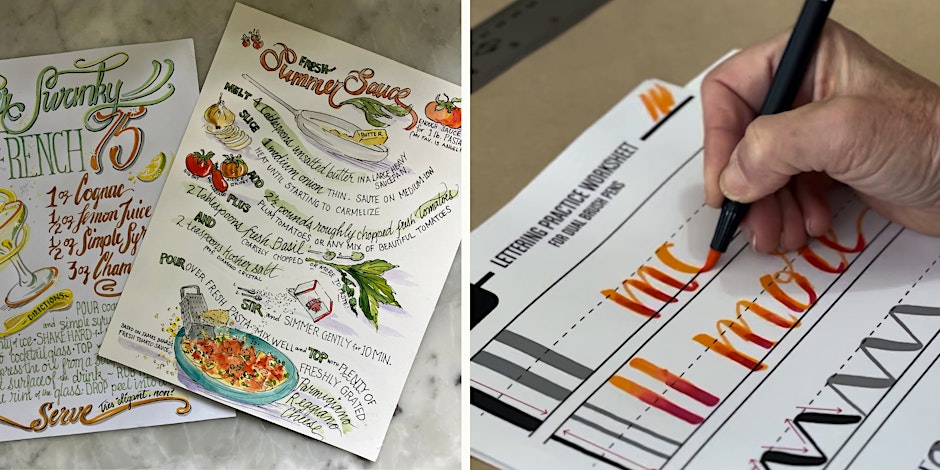 Swanky
FRENCH
75
1 oz Cognac
1/2 oz Lemon Juice
1/2 oz Simple Syr
3 oz Cham
DIRECTIONS
POUR
and simple syru
ice · SHAKE HARD
cocktail glass · TOP
press the oil from
surface of the drink
the rim of the glass · DROP peel into
Serve
très élégant, non?
FRESH
Summer Sauce
ENOUGH SAUCE
for 1 lb. PASTA
MELT 4 Tablespoons unsalted butter IN A LARGE HEAVY
SAUCEPAN
BUTTER
SLICE 1 medium onion THIN. SAUTE ON MEDIUM LOW
HEAT UNTIL STARTING TO CARMELIZE
ADD 2 1/2 pounds roughly chopped fresh tomatoes
PLUM TOMATOES OR ANY MIX OF BEAUTIFUL TOMATOES
PLUS
2 Tablespoons fresh Basil
COARSELY CHOPPED or MORE
AND
2 teaspoons kosher salt
DIAMOND CRYSTAL
STIR and SIMMER GENTLY for 10 MIN.
POUR OVER FRESH
PASTA · MIX WELL and TOP with PLENTY
OF FRESHLY GRATED
Parmigiano
Reggiano
Cheese
LETTERING PRACTICE WORKSHEET
FOR DUAL BRUSH PENS